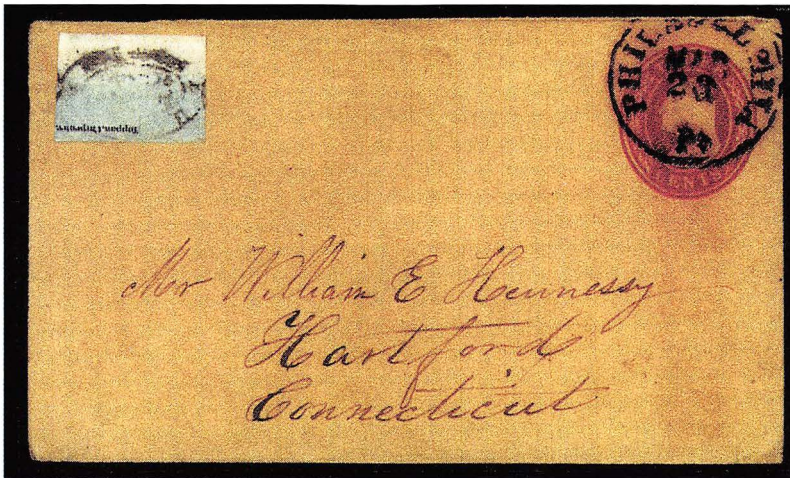 PHILADELPHIA
MAR
23
Pa
CENTS
Mr William E Hennessy
Hartford
Connecticut